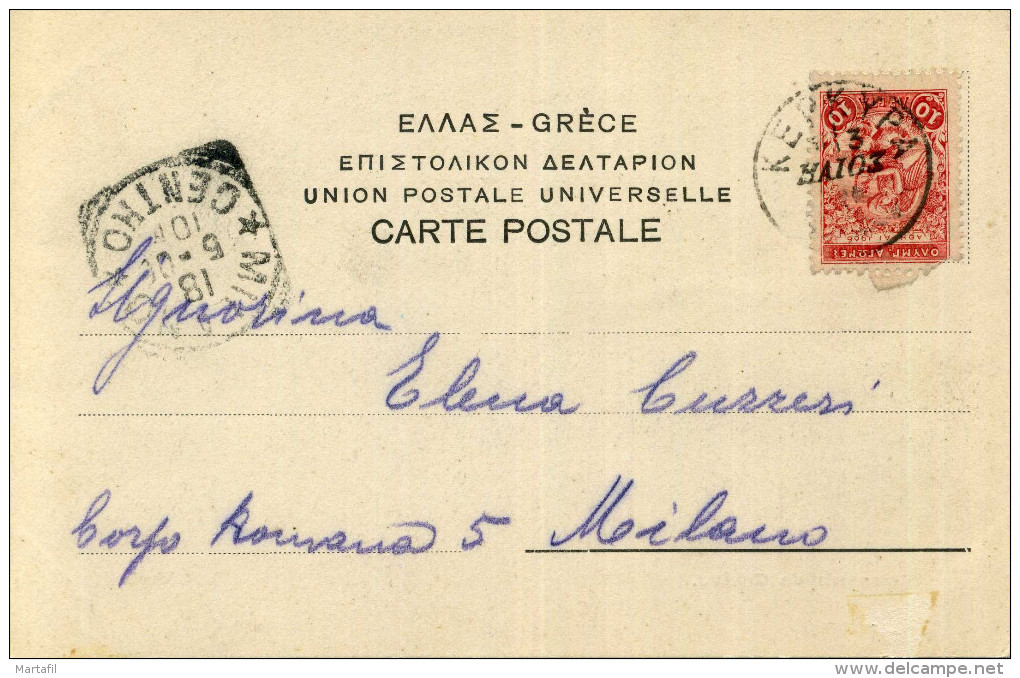 ΕΛΛΑΣ - GRÈCE
ΕΠΙΣΤΟΛΙΚΟΝ ΔΕΛΤΑΡΙΟΝ
UNION POSTALE UNIVERSELLE
CARTE POSTALE
ΚΕΡΚΥΡΑ
10 10
ΟΛΥΜΠ. ΑΓΩΝΕΣ
★ CENTRO
18
Signorina
Elena
Corso Romana 5 Milano
Martafil
delcampe.net